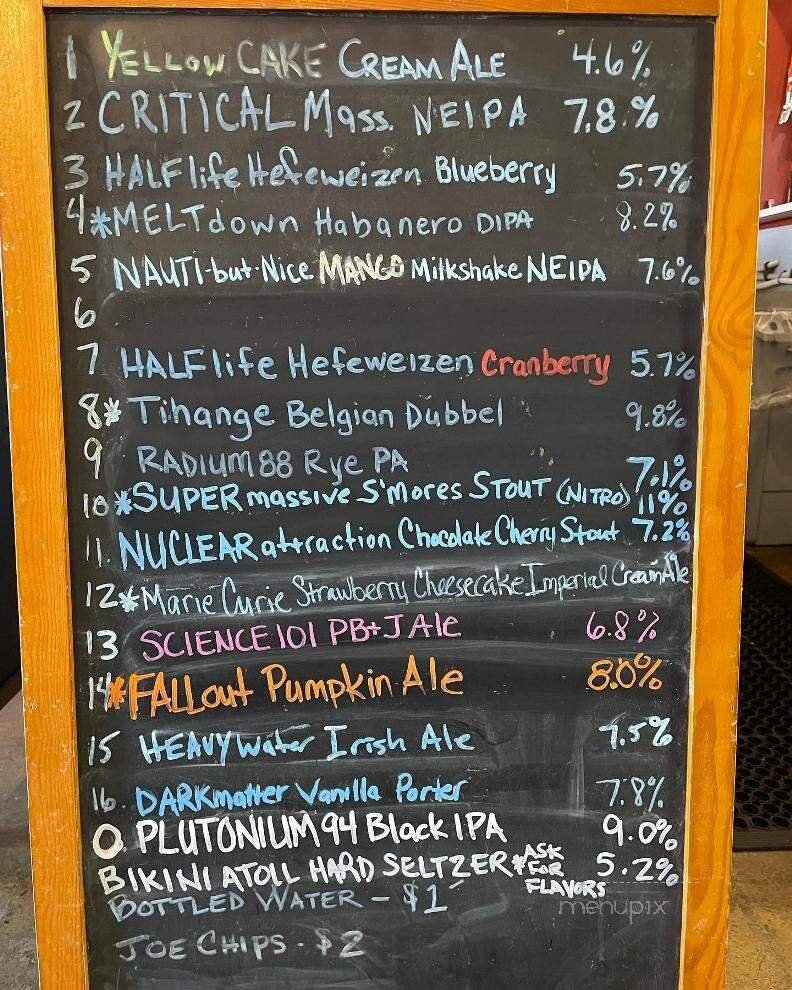 1 YELLOW CAKE CREAM ALE 4.6%
2 CRITICAL Mass. NEIPA 7.8.%
3 HALF life Hefeweizen Blueberry 5.7%
4 *MELTdown Habanero DIPA 8.2%
5 NAUTI-but-Nice MANGO Milkshake NEIPA 7.6%
6
7 HALF life Hefeweizen Cranberry 5.7%
8* Tihange Belgian Dubbel 9.8%
9 RADIUM 88 Rye PA 7.1%
10 *SUPERmassive S'mores STOUT (NITRO) 11%
11. NUCLEAR attraction Chocolate Cherry Stout 7.2%
12*Marie Curie Strawberry Cheesecake Imperial Cream Ale
13 SCIENCE 101 PB+J Ale 6.8%
14*FALLout Pumpkin Ale 8.0%
15 HEAVY water Irish Ale 7.5%
16. DARKmatter Vanilla Porter 7.8%
O. PLUTONIUM 94 Black IPA 9.0%
BIKINI ATOLL HARD SELTZER *ASK FOR FLAVORS 5.2%
BOTTLED WATER - $1
menupix
JOE CHIPS - $2